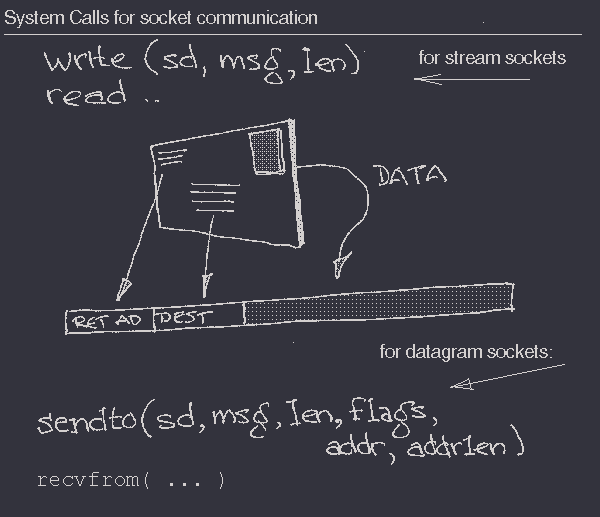 System Calls for socket communication
write (sd, msg, len)
for stream sockets
read ..
DATA
RET AD DEST
for datagram sockets:
sendto(sd, msg, len, flags,
addr, addrlen)
recvfrom( ... )